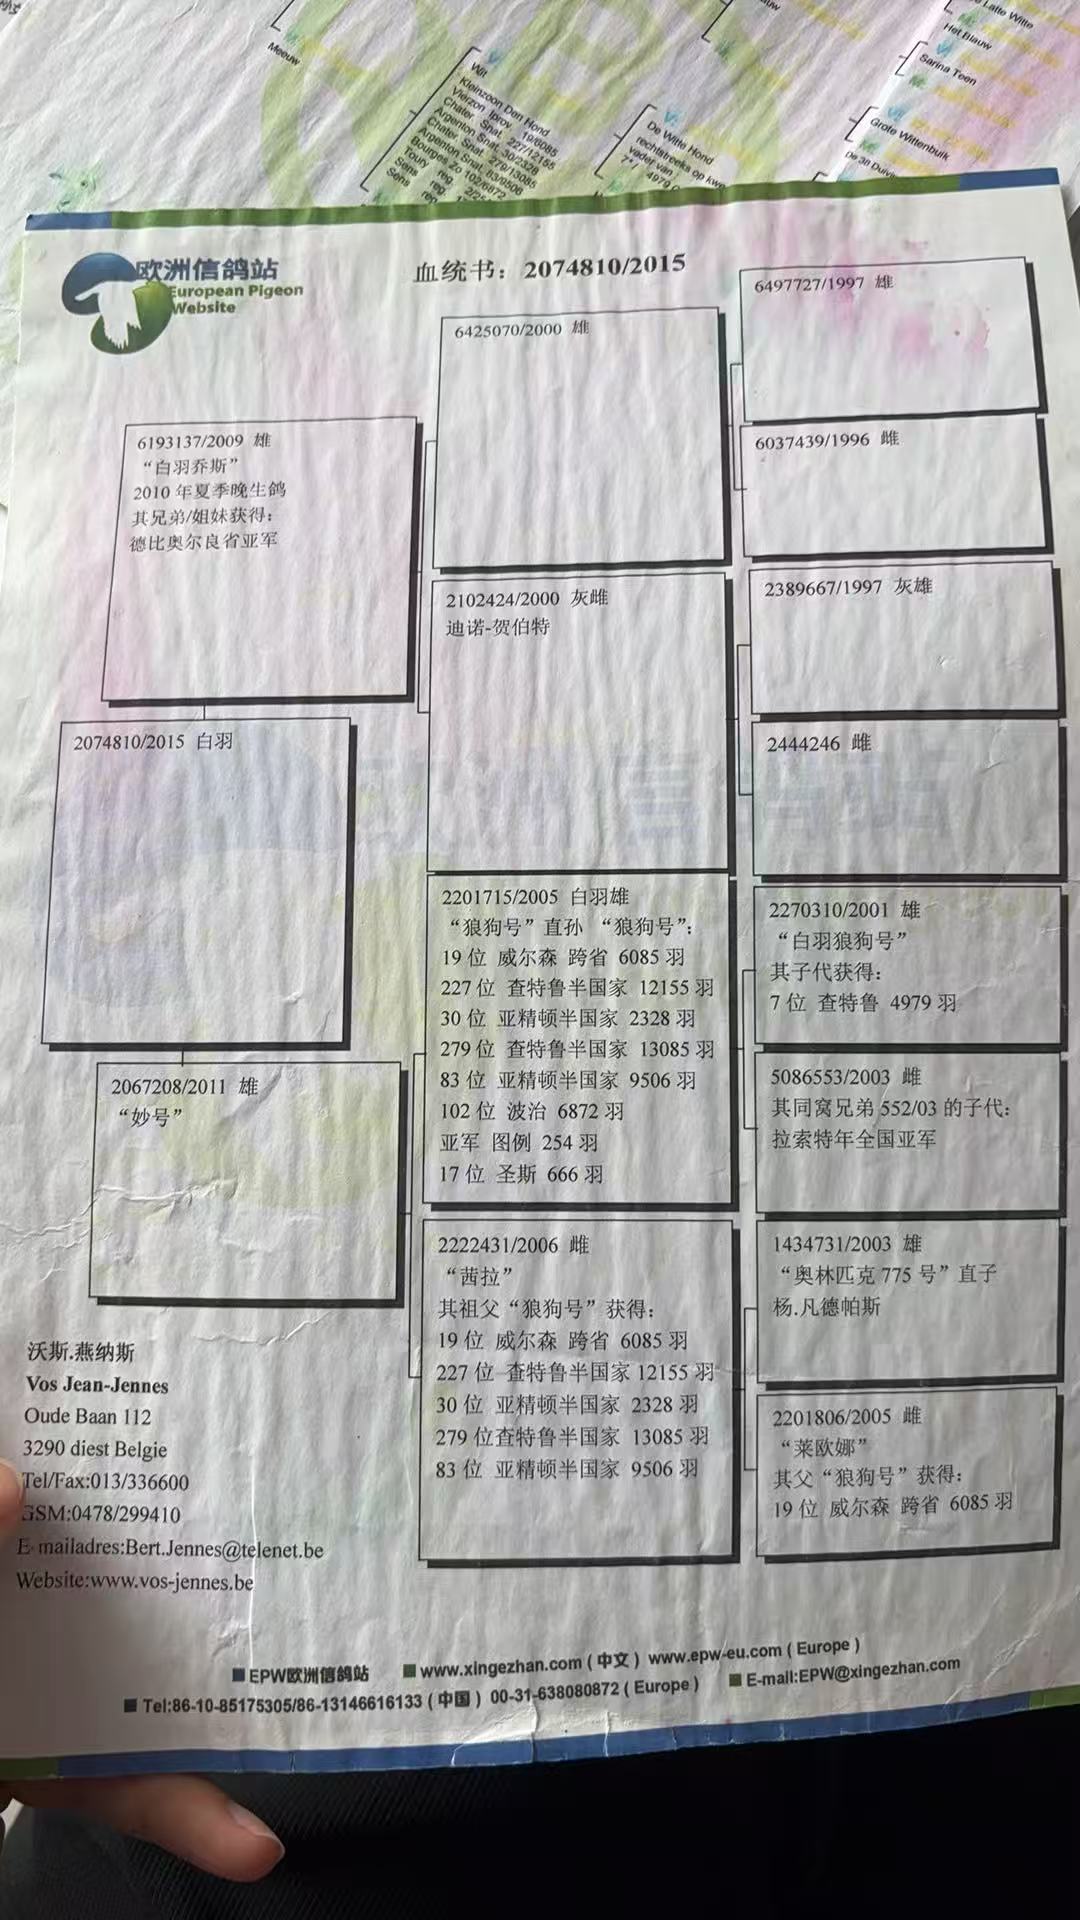 Meeuw
Wit
Kleinzoon Den Hond
Vierzon Iprov. 19/6085
Chater. Snat. 227/12155
Argenton Snat. 30/2328
Chater Snat. 279/13085
Argenton Snat. 83/9506
Bourges Zo 102/6872
Toury reg
Sens reg
Sens reg
De Witte Hond
rechtstreeks op kwe
vader van
7°/ 4979
Latte Witte
Het Blauw
Sarina Teen
Grote Wittenbuik
欧洲信鸽站
European Pigeon
Website
血统书：2074810/2015
6193137/2009 雄
“白羽乔斯”
2010 年夏季晚生鸽
其兄弟/姐妹获得：
德比奥尔良省亚军
2074810/2015 白羽
2067208/2011 雄
“妙号”
6425070/2000 雄
2102424/2000 灰雌
迪诺-贺伯特
2201715/2005 白羽雄
“狼狗号”直孙 “狼狗号”：
19 位 威尔森 跨省 6085 羽
227 位 查特鲁半国家 12155 羽
30 位 亚精顿半国家 2328 羽
279 位 查特鲁半国家 13085 羽
83 位 亚精顿半国家 9506 羽
102 位 波治 6872 羽
亚军 图例 254 羽
17 位 圣斯 666 羽
2222431/2006 雌
“茜拉”
其祖父“狼狗号”获得：
19 位 威尔森 跨省 6085 羽
227 位 查特鲁半国家 12155 羽
30 位 亚精顿半国家 2328 羽
279 位查特鲁半国家 13085 羽
83 位 亚精顿半国家 9506 羽
6497727/1997 雄
6037439/1996 雌
2389667/1997 灰雄
2444246 雌
2270310/2001 雄
“白羽狼狗号”
其子代获得：
7 位 查特鲁 4979 羽
5086553/2003 雌
其同窝兄弟 552/03 的子代：
拉索特年全国亚军
1434731/2003 雄
“奥林匹克 775 号”直子
杨.凡德帕斯
2201806/2005 雌
“莱欧娜”
其父“狼狗号”获得：
19 位 威尔森 跨省 6085 羽
沃斯.燕纳斯
Vos Jean-Jennes
Oude Baan 112
3290 diest Belgie
Tel/Fax:013/336600
GSM:0478/299410
E-mailadres:Bert.Jennes@telenet.be
Website:www.vos-jennes.be
EPW欧洲信鸽站 www.xingezhan.com ( 中文 ) www.epw-eu.com ( Europe )
Tel:86-10-85175305/86-13146616133 ( 中国 ) 00-31-638080872 ( Europe ) E-mail:EPW@xingezhan.com